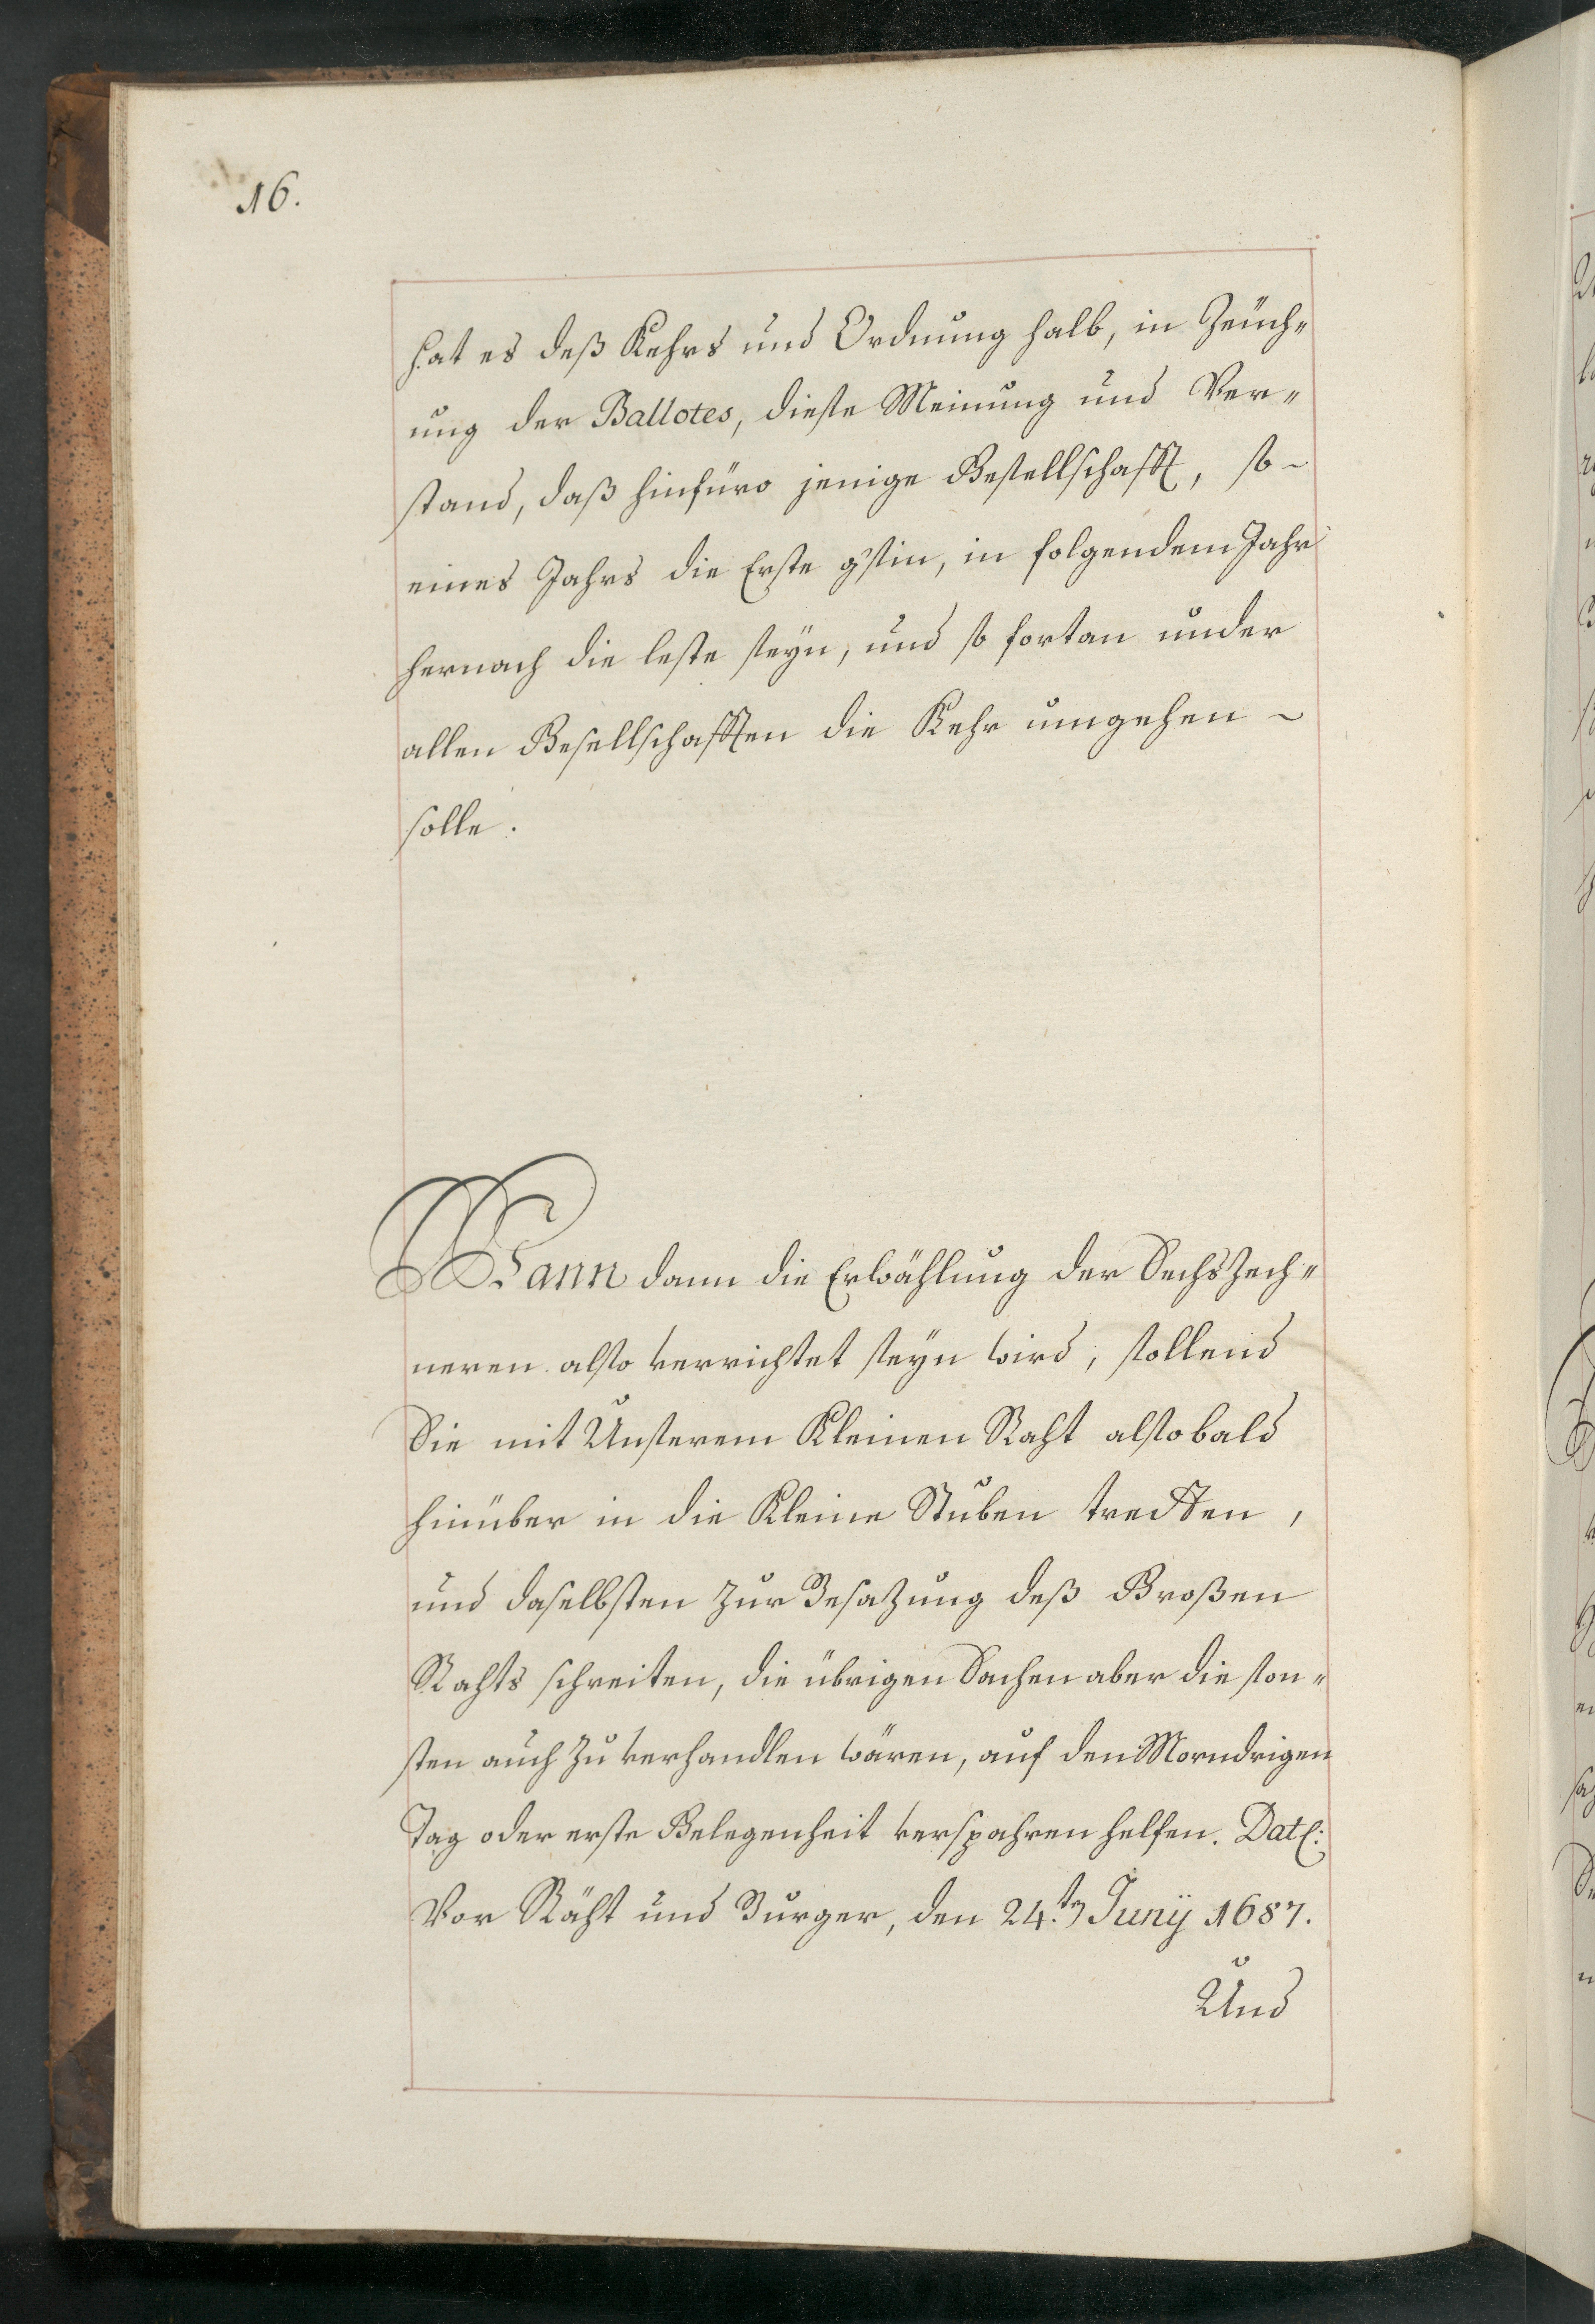 16.
hat es deß Kehrs und Ordnung halb, in Zeüch„
ung der Ballotes, diese Meinung und Ver„
stand, daß hinfüro jenige Gesellschafft, so ~
eines Jahrs die Erste gsin, in folgendem Jahr
hernach die leste seyn, und so fortan under
allen Gesellschafften die Kehr umgehen ~
solle.
Wann dann die Erwählung der SechsZech„
neren also verrichtet seyn wird, sollend
Sie mit Unserem Kleinen Raht alsobald
hinüber in die Kleine Stuben tretten,
und daselbsten zur Besazung deß Großen
Rahts schreiten, die übrigen Sachen aber die son„
sten auch zu verhandlen wären, auf den Morndrigen
Tag oder erste Gelegenheit verspahren helfen. Dat:
Vor Räht und Burger, den 24.ten Junÿ 1687.
Und